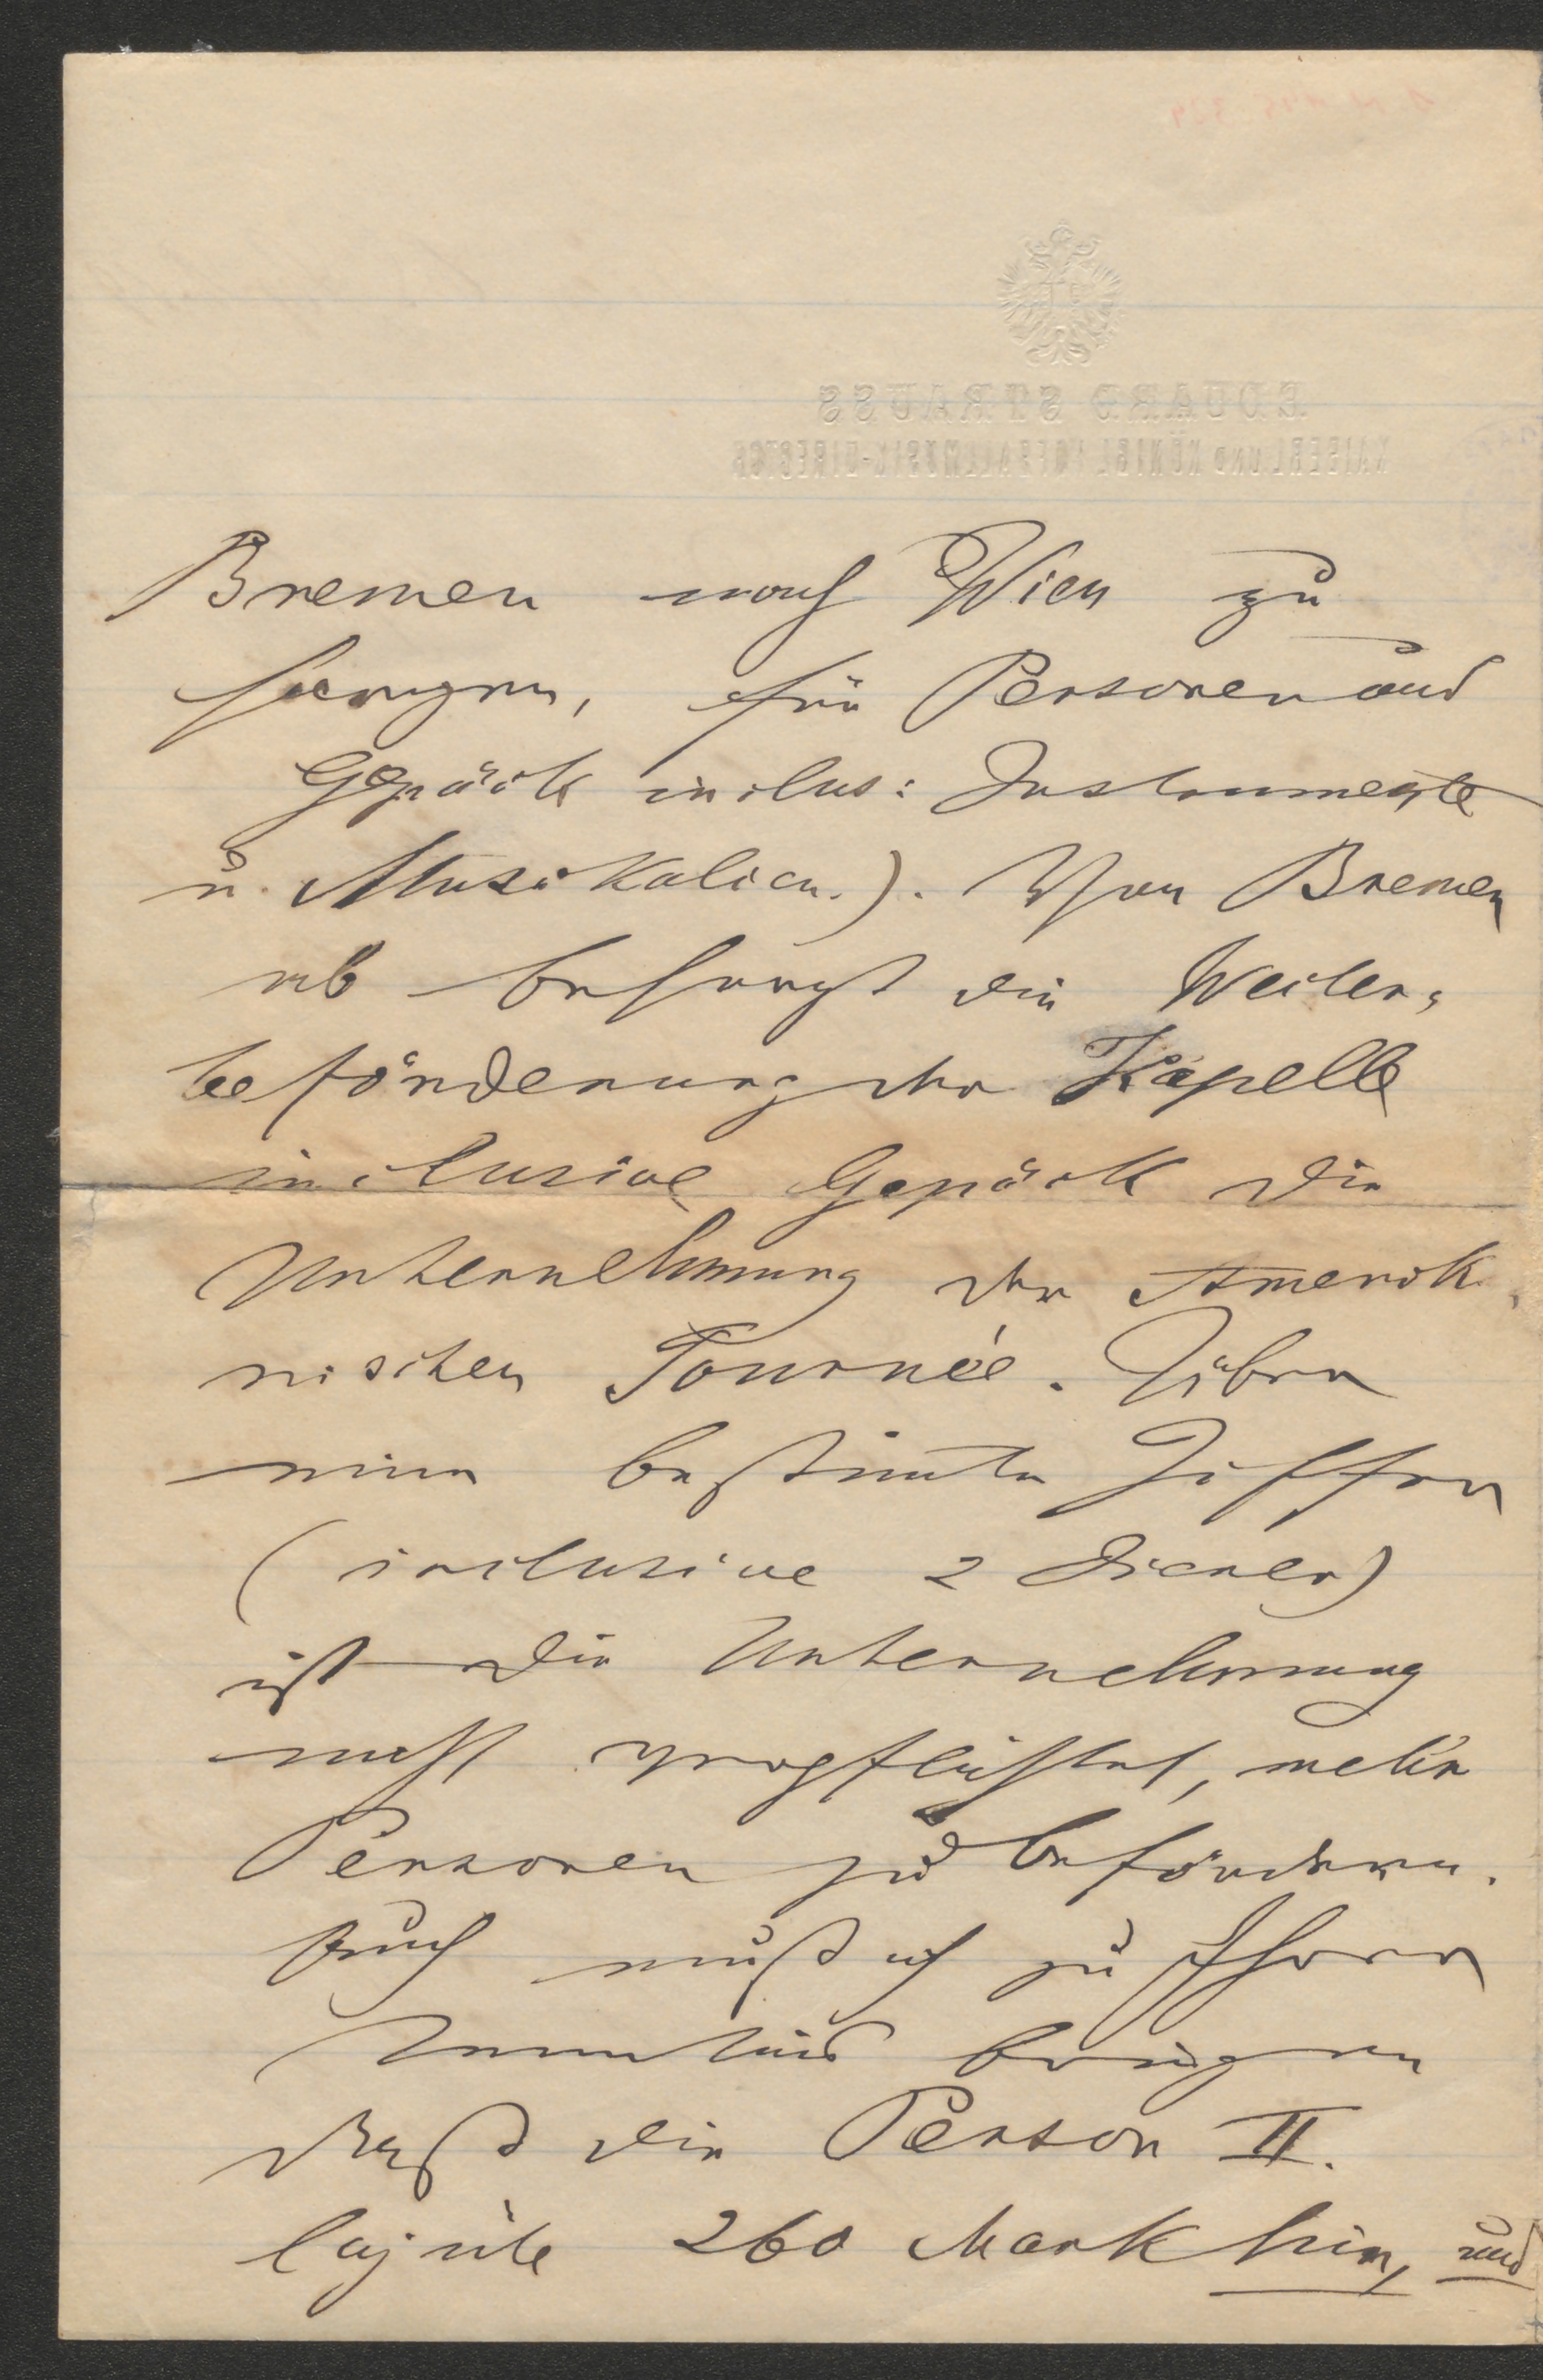 EDUARD STRAUSS
KAISERL. UND KÖNIGL. HOFBALLMUSIK-DIRECTOR
Bremen nach Wien zu
sorgen, für Personen und
Gepäck inclus: Instrumente
u. Musikalien.). Von Bremen
ab besorgt die Weiter-
beförderung der Kapelle
inclusive Gepäck die
Unternehmung der Amerik.
nischen Tournée. Über
eine bestimte Ziffer
(inclusive 2 Diener)
ist die Unternehmung
nicht verpflichtet, mehr
Personen zu befördern.
Auch muß ich zu Ihrer
Kenntnis bringen
daß die Person II.
Cajüte 260 Mark hin, und